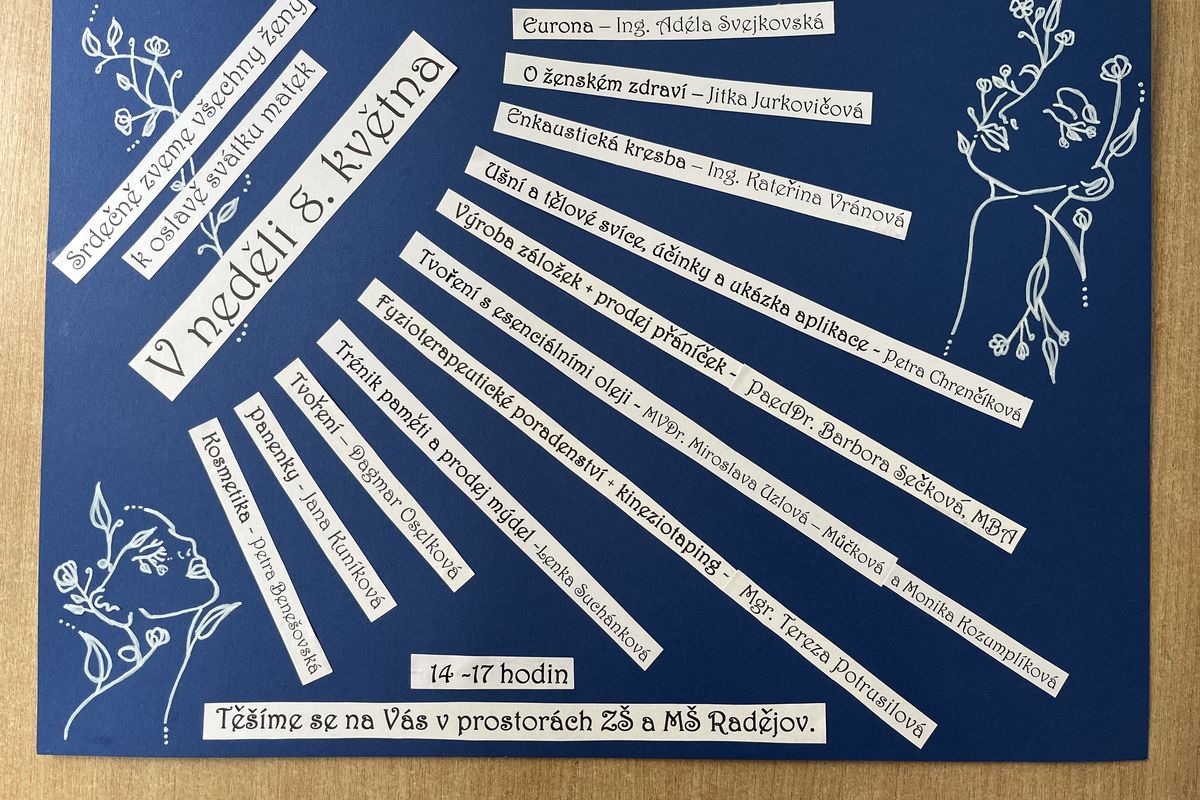 Srdečně zveme všechny ženy
k oslavě svátku matek
V neděli 8. května
Eurona – Ing. Adéla Svejkovská
O ženském zdraví – Jitka Jurkovičová
Enkaustická kresba – Ing. Kateřina Vránová
Ušní a tělové svíce, účinky a ukázka aplikace - Petra Chrenčíková
Výroba záložek + prodej přáníček - PaedDr. Barbora Sečková, MBA
Tvoření s esenciálními oleji - MVDr. Miroslava Uzlová – Můčková a Monika Rozumplíková
Fyzioterapeutické poradenství + kineziotaping - Mgr. Tereza Potrusilová
Trénik paměti a prodej mýdel -Lenka Suchánková
Tvoření – Dagmar Oselková
Panenky - Jana Kuníková
Kosmetika - Petra Benešovská
14 -17 hodin
Těšíme se na Vás v prostorách ZŠ a MŠ Radějov.